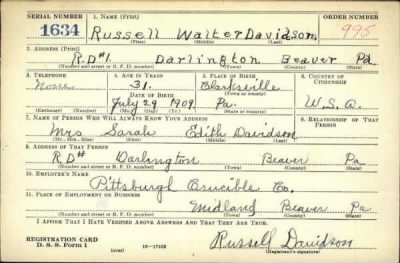 SERIAL NUMBER 1. NAME (Print) ORDER NUMBER
1634 Russell Walter Davidson 995
(First) (Middle) (Last)
2. ADDRESS (Print)
R.D#1. Darlington Beaver Pa
(Number and street or R. F. D. number) (Town) (County) (State)
3. TELEPHONE 4. AGE IN YEARS 5. PLACE OF BIRTH 6. COUNTRY OF CITIZENSHIP
None 31. Clarksville
DATE OF BIRTH (Town or county)
July 29 1909. Pa. U.S.A.
(Exchange) (Number) (Mo.) (Day) (Yr.) (State or country)
7. NAME OF PERSON WHO WILL ALWAYS KNOW YOUR ADDRESS 8. RELATIONSHIP OF THAT PERSON
Mrs Sarah Edith Davidson
(Mr., Mrs., Miss) (First) (Middle) (Last)
9. ADDRESS OF THAT PERSON
R D# Darlington Beaver Pa
(Number and street or R. F. D. number) (Town) (County) (State)
10. EMPLOYER'S NAME
Pittsburgh Crucible Co.
11. PLACE OF EMPLOYMENT OR BUSINESS
Midland Beaver Pa
(Number and street or R. F. D. number) (Town) (County) (State)
I AFFIRM THAT I HAVE VERIFIED ABOVE ANSWERS AND THAT THEY ARE TRUE.
REGISTRATION CARD
D. S. S. Form 1 (over) 16-17105 Russell Davidson
(Registrant's signature)